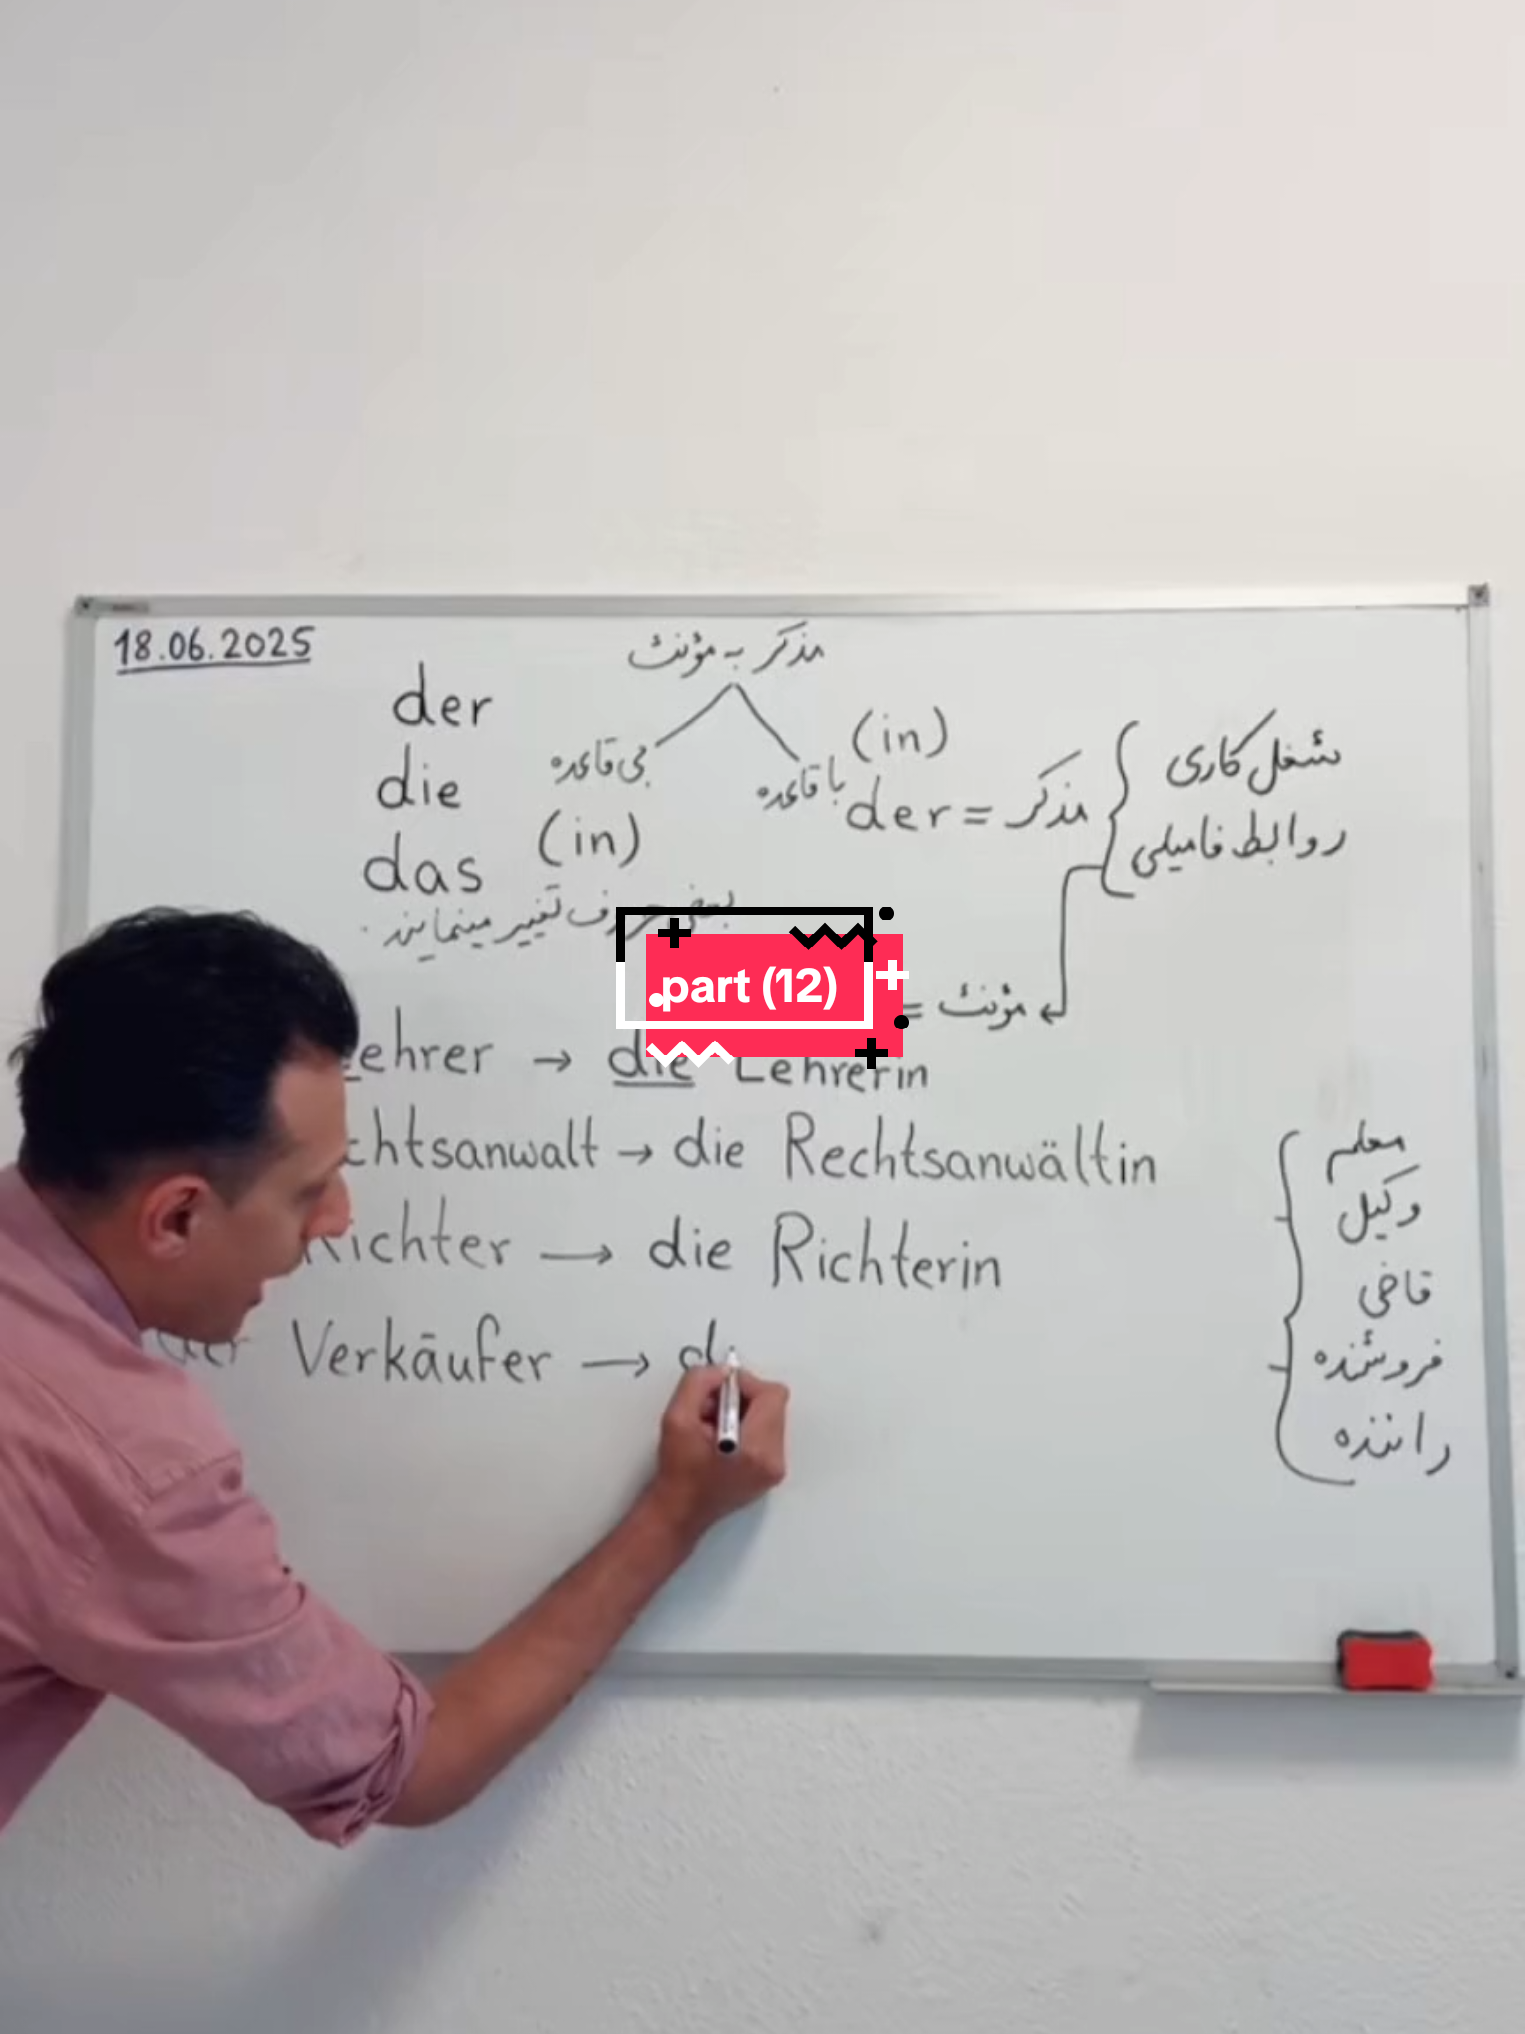 18.06.2025
مذکر به مؤنث
der
die
das
بی قاعده
(in)
با قاعده
(in)
der = مذکر
شغل کاری
روابط فامیلی
بعضی حروف تغییر مینمایند.
part (12)
= مؤنث
Lehrer → die Lehrerin
chtsanwalt → die Rechtsanwältin
Richter → die Richterin
der Verkäufer → d
معلم
وکیل
قاضی
فروشنده
راننده